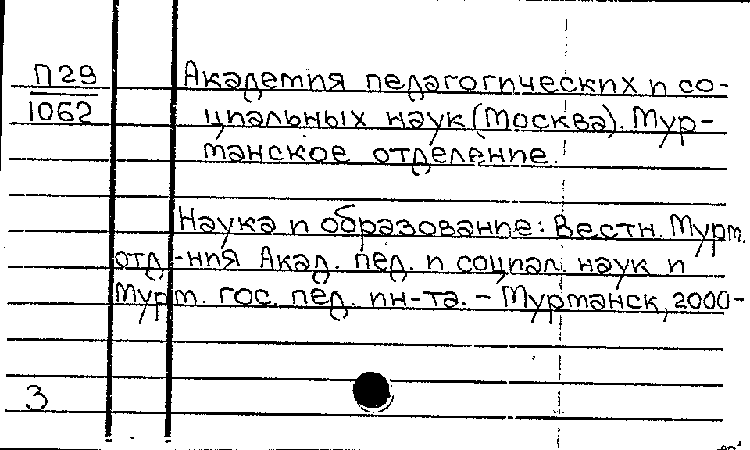 П29
1062
Академия педагогических и со-
циальных наук (Москва). Мур-
манское отделение.
Наука и образование: Вестн. Мурм.
отд-ния Акад. пед. и социал. наук и
Мурм. гос. пед. ин-та. – Мурманск, 2000-
3